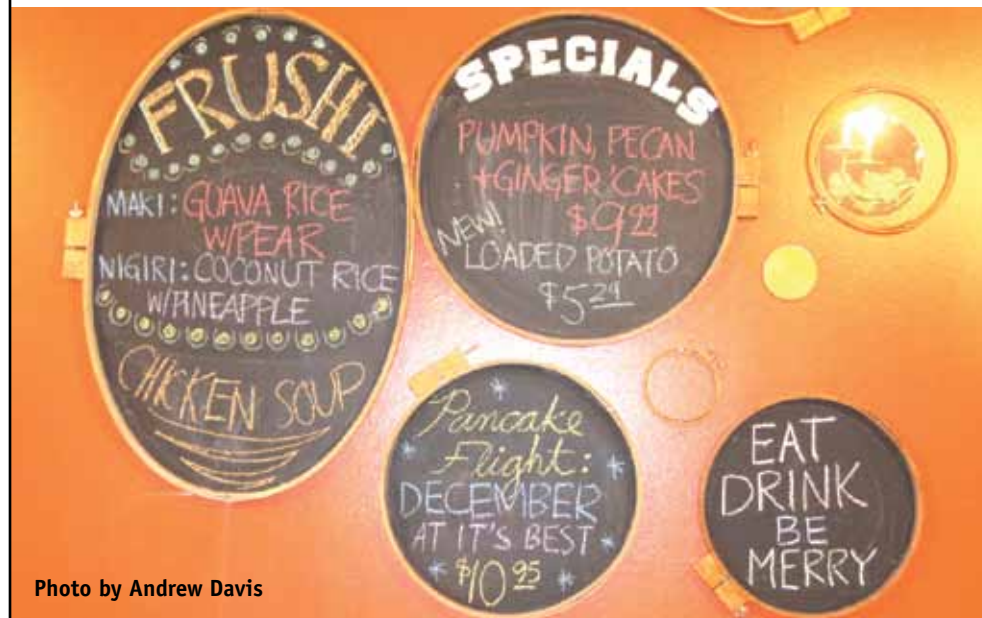 FRUSHI
MAKI: GUAVA RICE
W/PEAR
NIGIRI: COCONUT RICE
W/PINEAPPLE
CHICKEN SOUP
SPECIALS
PUMPKIN, PECAN
+GINGER 'CAKES
$9.99
NEW!
LOADED POTATO
$5.29
Pancake
Flight:
DECEMBER
AT IT'S BEST
$10.95
EAT
DRINK
BE
MERRY
Photo by Andrew Davis